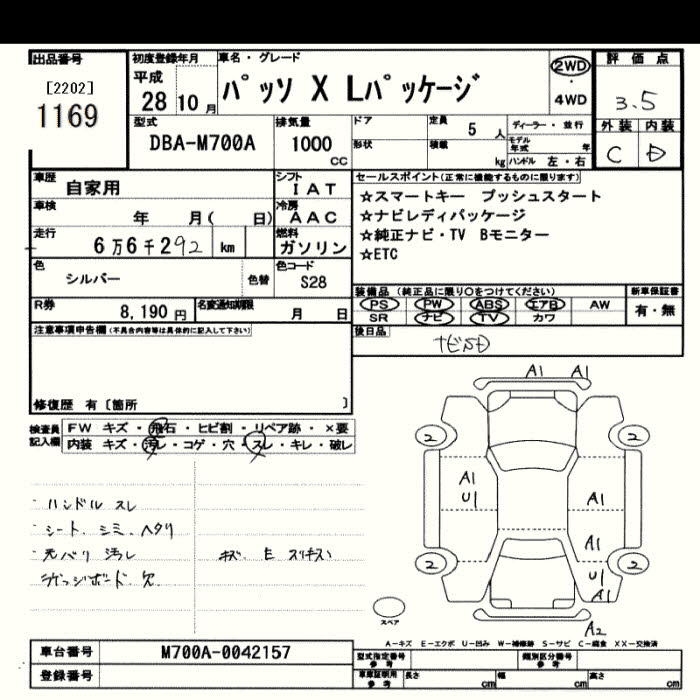 出品番号
[2202]
1169
初度登録年月
平成
28 10月
車名・グレード
パッソ X Lパッケージ
2WD
4WD
評価点
3.5
外装 内装
C D
型式
DBA-M700A
排気量
1000
CC
ドア
形状
定員
5 人
積載
kg
ディーラー・並行
モデル年式 年
ハンドル 左・右
車歴
自家用
車検
年 月( 日)
走行
6万6千292 km
色
シルバー
色替
シフト
IAT
冷房
AAC
燃料
ガソリン
色コード
S28
セールスポイント(正常に機能するものに限ります)
☆スマートキー プッシュスタート
☆ナビレディパッケージ
☆純正ナビ・TV Bモニター
☆ETC
装備品(純正品に限り○をつけてください)
PS PW ABS エアB AW
SR ナビ TV カワ
新車保証書
有・無
R券
8,190 円
名変通知期限
月 日
後日品
ナビSD
注意事項申告欄(不具合内容等は具体的に記入して下さい)
修復歴 有〔箇所 〕
検査員記入欄
FW キズ・飛石・ヒビ割・リペア跡・×要
内装 キズ・汚レ・コゲ・穴・スレ・キレ・破レ
・ハンドル スレ
・シート、シミ、ヘタリ
・天バリ 汚レ
キズ、E スリキズ
・ラゲッジボード、欠
A1 A1
2 2
A1
U1
A1
A1
2 2
U1
A1
A2
スペア
A-キズ E-エクボ U-凹み W-補修跡 S-サビ C-腐食 XX-交換済
車台番号
M700A-0042157
登録番号
型式指定番号
参考
類別区分番号
参考
車庫証明用
参考
長さ cm
幅 cm
高さ cm